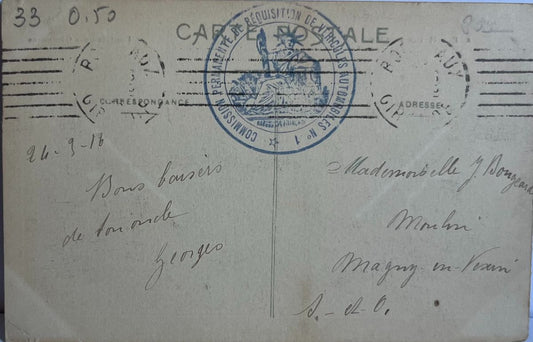 33 0.50
CARTE POSTALE
COMMISSION PERMANENTE DE RÉQUISITION DE VÉHICULES AUTOMOBILES N° 1
CORRESPONDANCE
ADRESSE
24-3-16
Bons baisers
de
Georges
Mademoiselle J.
Moulin
Magny-en-Vexin
S.-et-O.